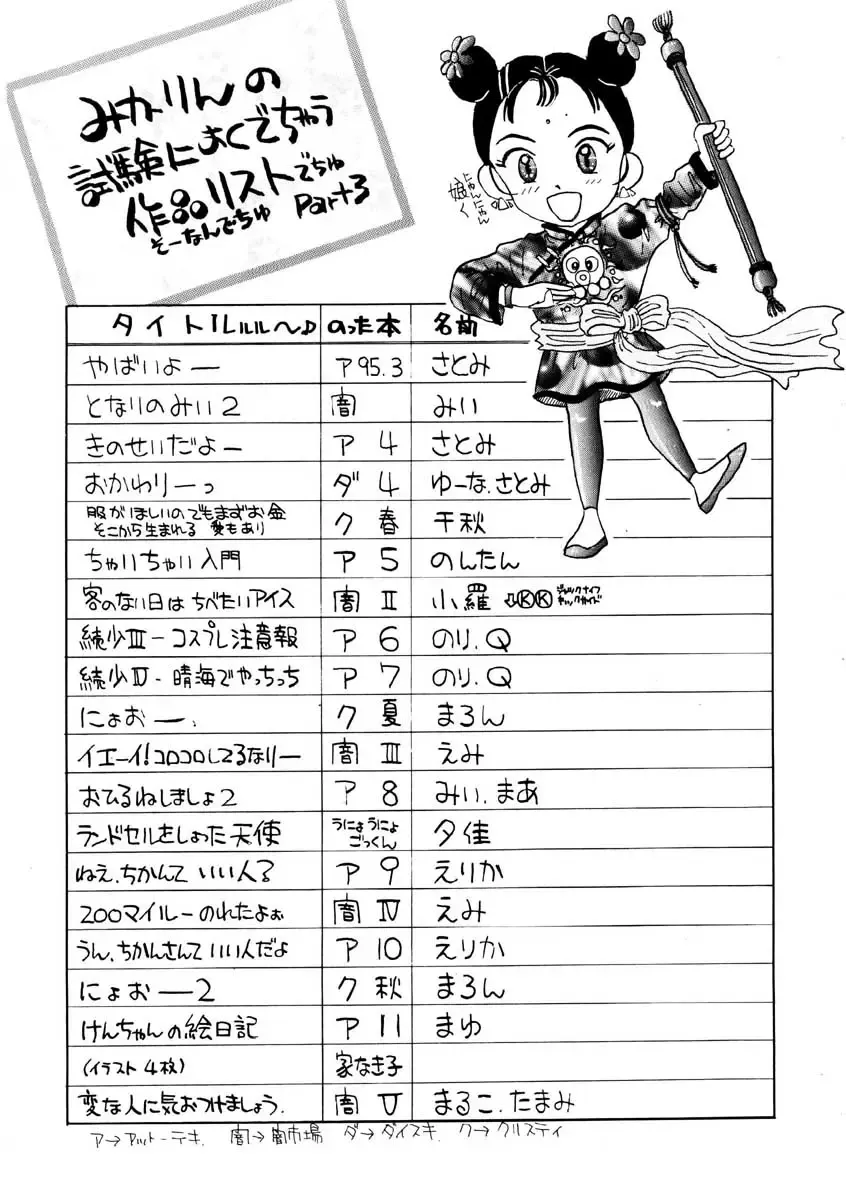 みかりんの
試験によくでちゃう
作品リストでちゅ
そーなんでちゅ Part3
娘々
にゃんにゃん
タイトルルル〜♪ のった本 名前
やばいよー ア95.3 さとみ
となりのみい2 闇 みい
きのせいだよー ア 4 さとみ
おかわりーっ ダ 4 ゆーな.さとみ
服がほしいのでもまずお金
そこから生まれる 愛もあり ク 春 千秋
ちゃいちゃい入門 ア 5 のんたん
客のない日はちべたいアイス 闇 II 小羅 ⓀⓀ
続少III-コスプレ注意報 ア 6 のり.Q
続少IV-晴海でやっちっち ア 7 のり.Q
にょおー. ク 夏 まろん
イエーイ!コロコロしてるなりー 闇 III えみ
おひるねしましょ2 ア 8 みい.まあ
ランドセルをしょった天使 うにょうにょ
ごっくん 夕佳
ねえ.ちかんて いい人? ア 9 えりか
200マイルーのれたよぉ 闇 IV えみ
うん.ちかんさんていい人だよ ア 10 えりか
にょおー2 ク 秋 まろん
けんちゃんの絵日記 ア 11 まゆ
(イラスト 4枚) 家なき子
変な人に気おつけましょう. 闇 V まるこ.たまみ
ア→アットーテキ. 闇→闇市場 ダ→ダイスキ. ク→クリスティ